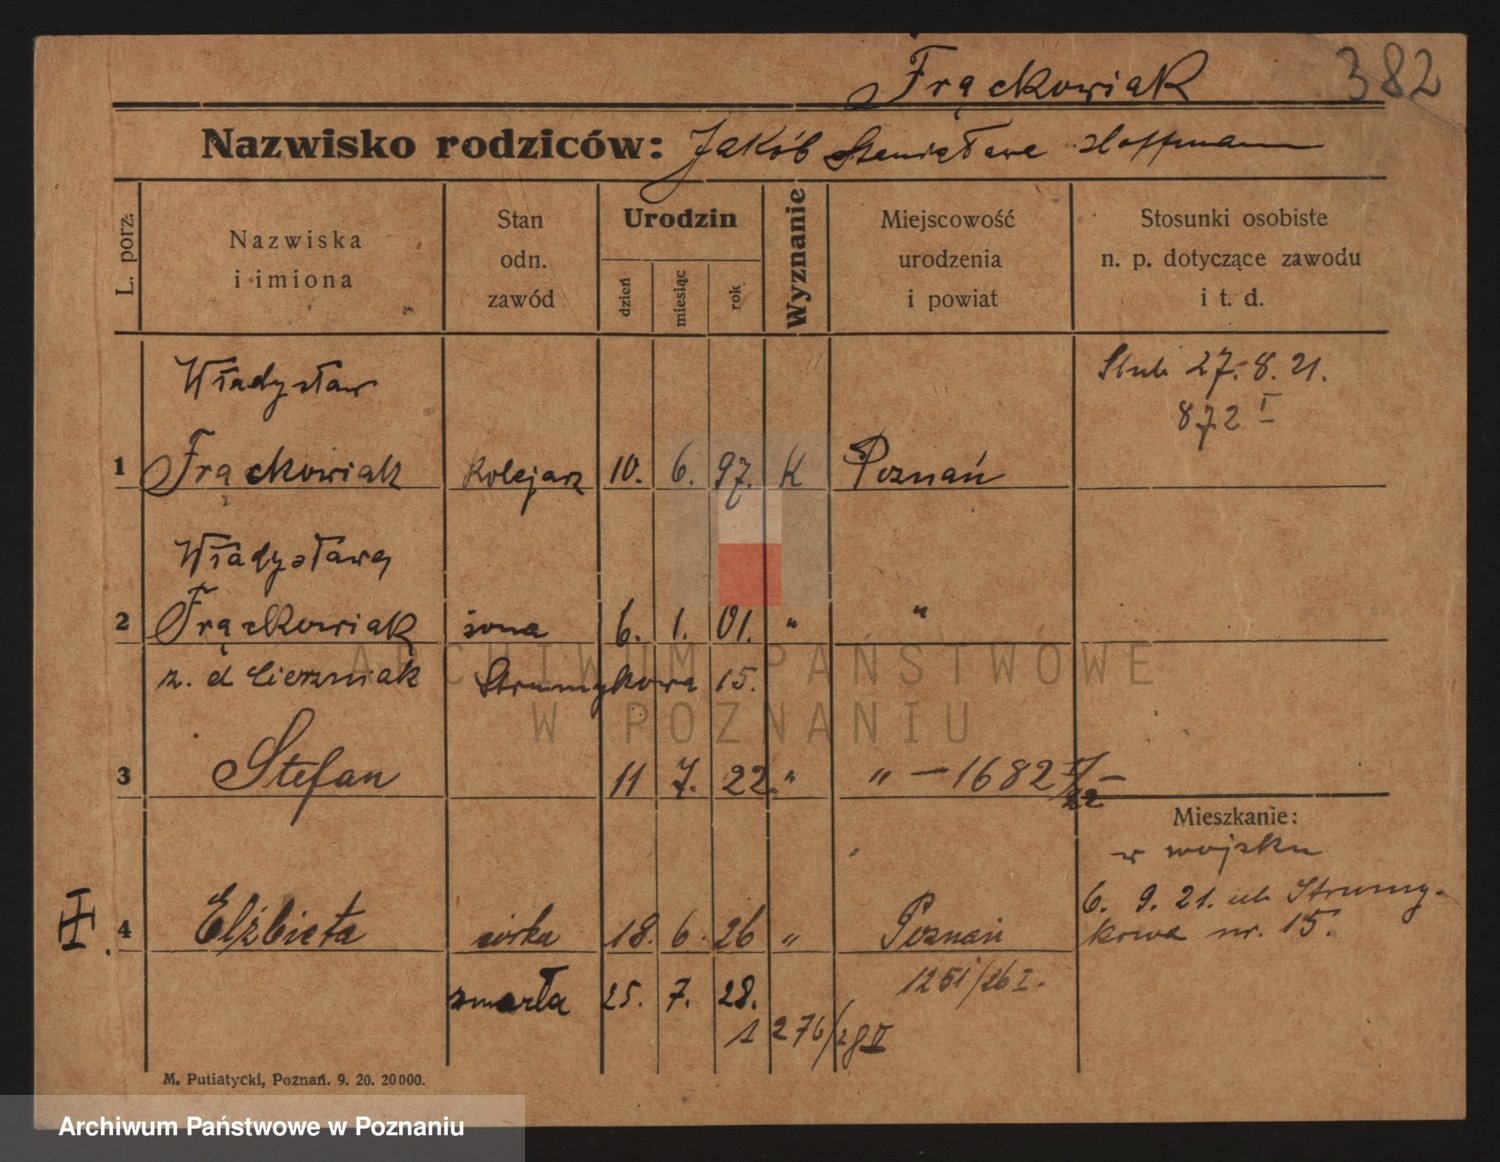 Frąckowiak 382
Nazwisko rodziców: Jakób Stanisława Hoffmann
L. porz.
Nazwiska
i imiona
Stan
odn.
zawód
Urodzin
dzień
miesiąc
rok
Wyznanie
Miejscowość
urodzenia
i powiat
Stosunki osobiste
n. p. dotyczące zawodu
i t. d.
Władysław
Ślub 27.8.21.
872 I
1 Frąckowiak kolejarz 10. 6. 97. K Poznań
Władysława
2 Frąckowiak żona 6. 1. 01. " "
z. d. Cierzniak Strumykowa 15.
ARCHIWUM PAŃSTWOWE
W POZNANIU
3 Stefan 11 7. 22. " " — 1682 I/22
Mieszkanie:
w wojsku
6. 9. 21. ul. Strumy-
kowa nr. 15.
4 Elżbieta córka 18. 6. 26 " Poznań
1251/26 I.
zmarła 25. 7. 28.
1276/28 II
M. Putiatycki, Poznań. 9. 20. 20000.
Archiwum Państwowe w Poznaniu